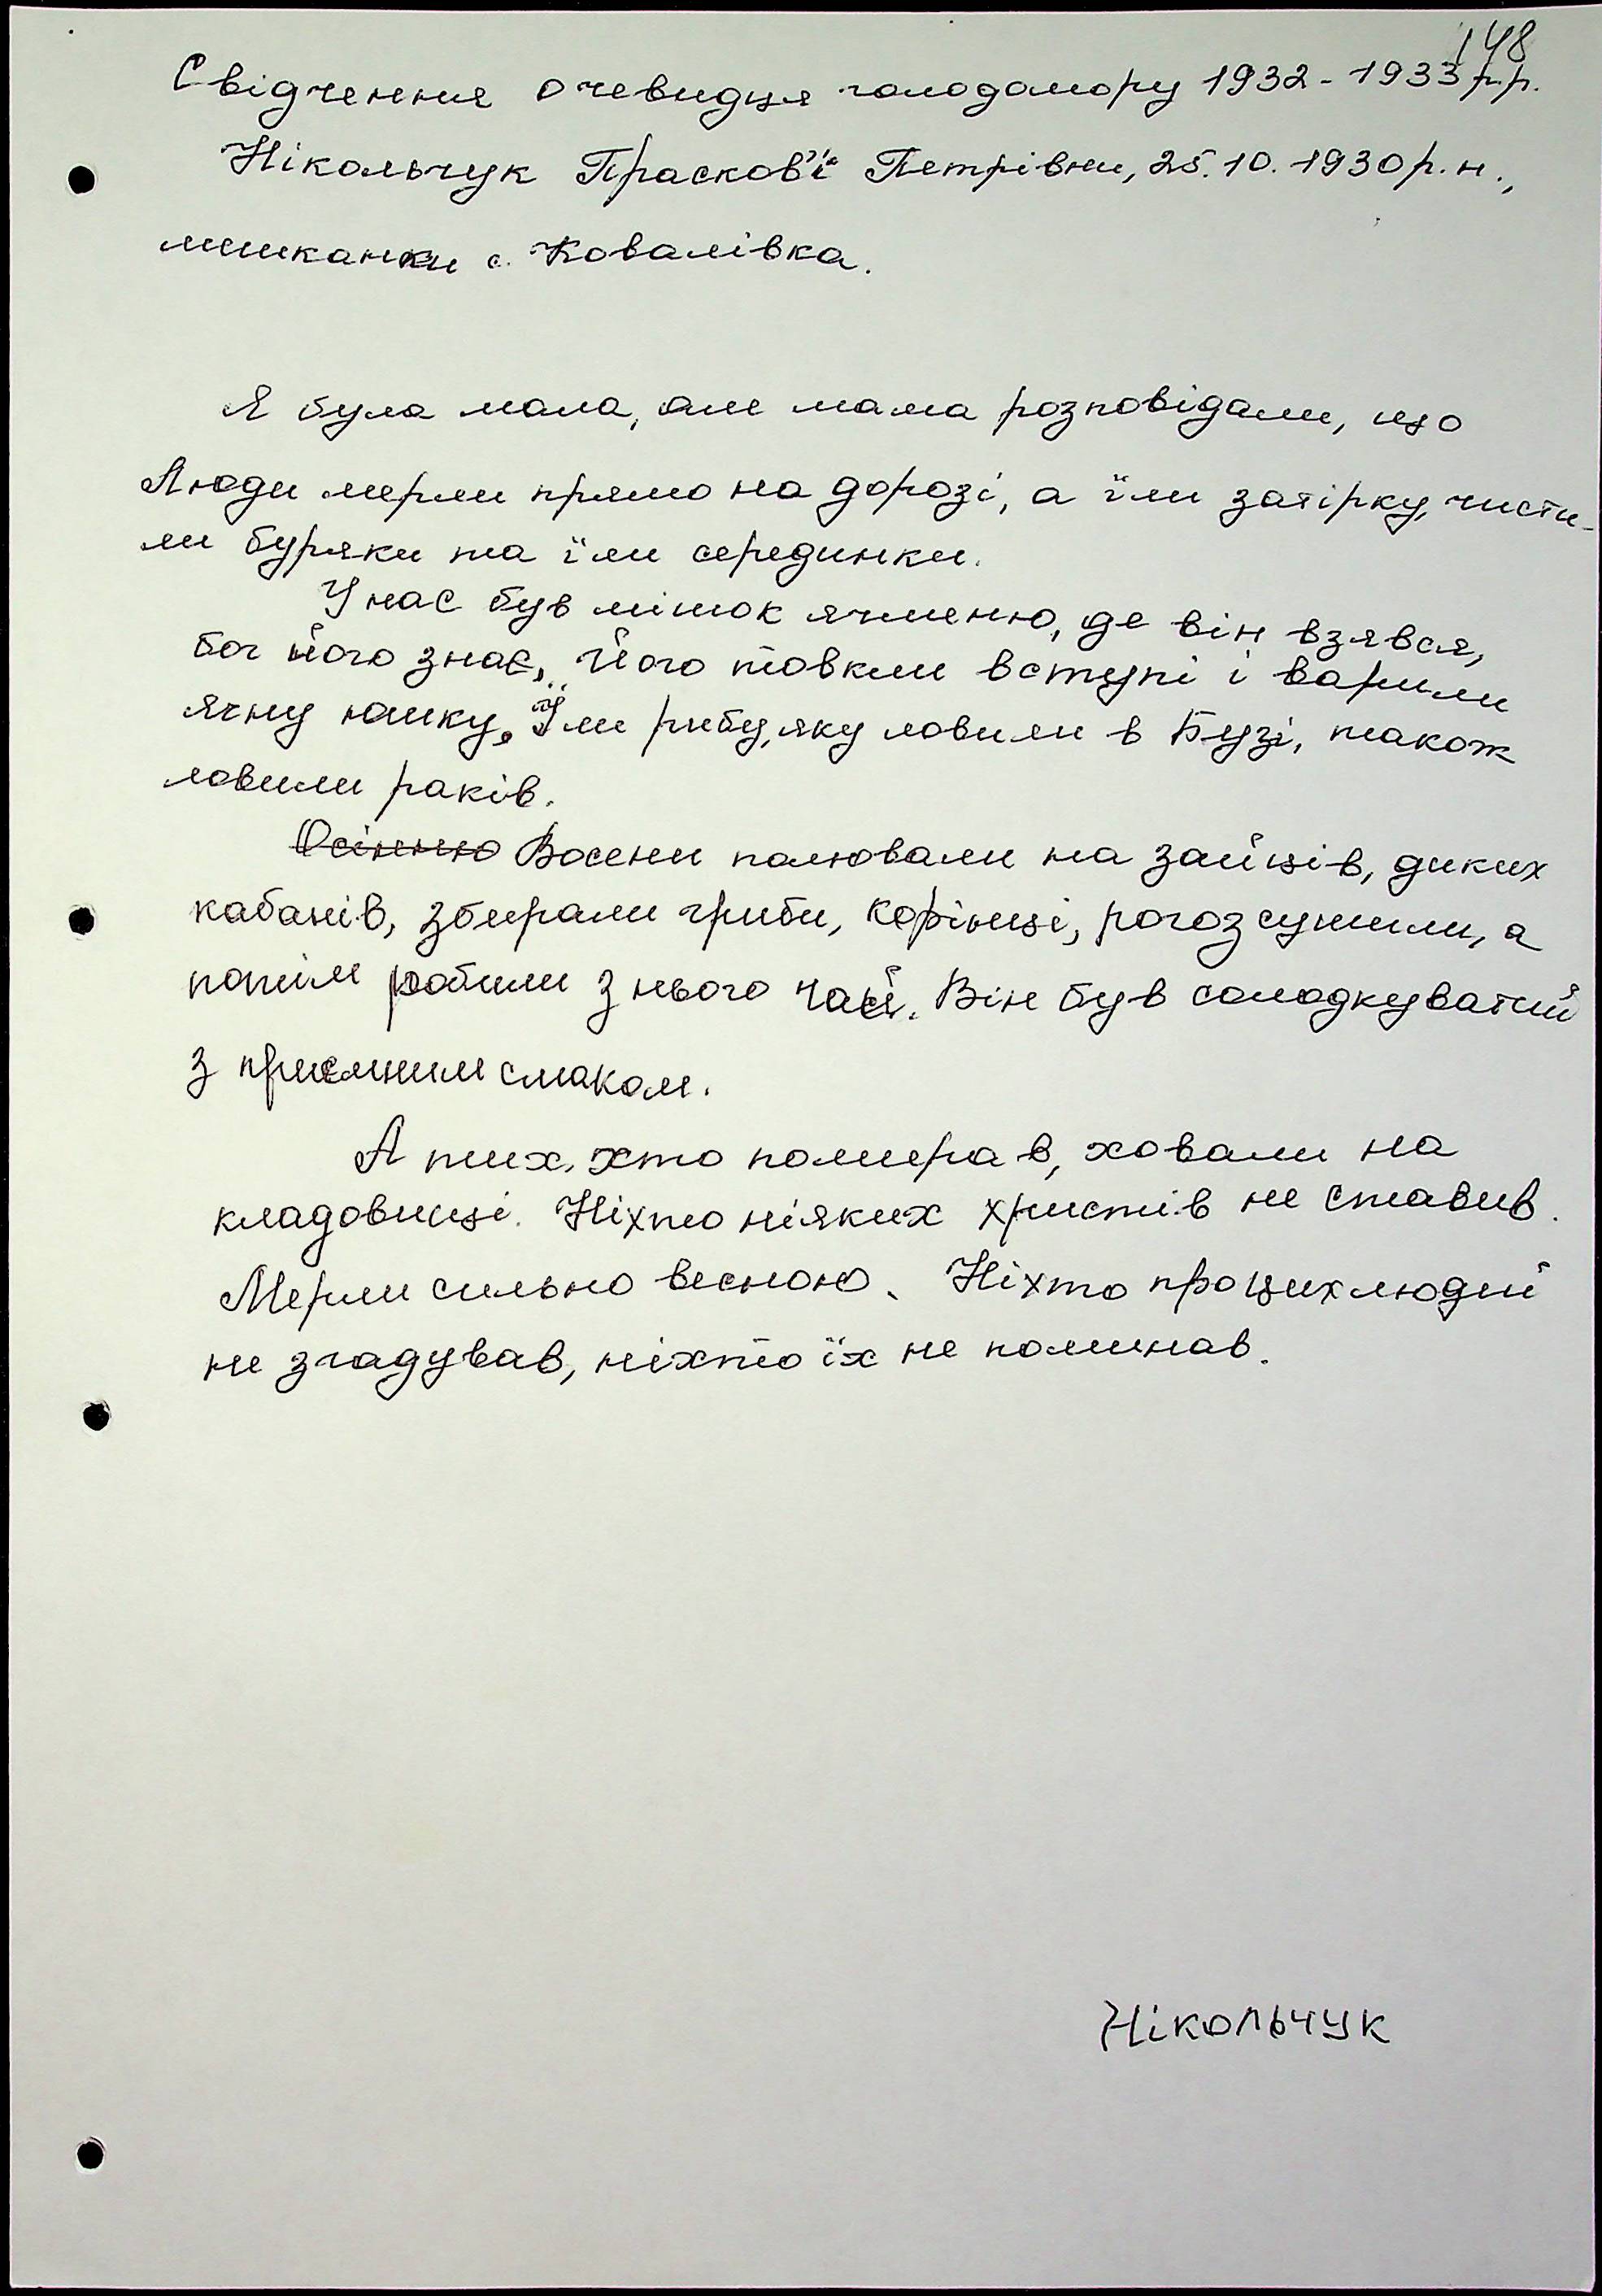 148
Свідчення очевидця голодомору 1932-1933 р.р.
Нікольчук Прасков'ї Петрівни, 25.10.1930 р.н.,
мешканки с. Ковалівка.
Я була мала, але мама розповідали, що
люди мерли прямо на дорозі, а їли затірку, чисти-
ли буряки та їли серединки.
У нас був мішок ячменю, де він взявся,
бог його знає, його товкли в ступі і варили
ячну юшку. Їли рибу, яку ловили в Бузі, також
ловили раків.
Осінню Восени полювали на зайців, диких
кабанів, збирали гриби, корінці, рогоз сушили, а
потім робили з нього чай. Він був солодкуватий
з приємним смаком.
А тих, хто помирав, ховали на
кладовищі. Ніхто ніяких христів не ставив.
Мерли сильно весною. Ніхто про цих людей
не згадував, ніхто їх не поминав.
Нікольчук